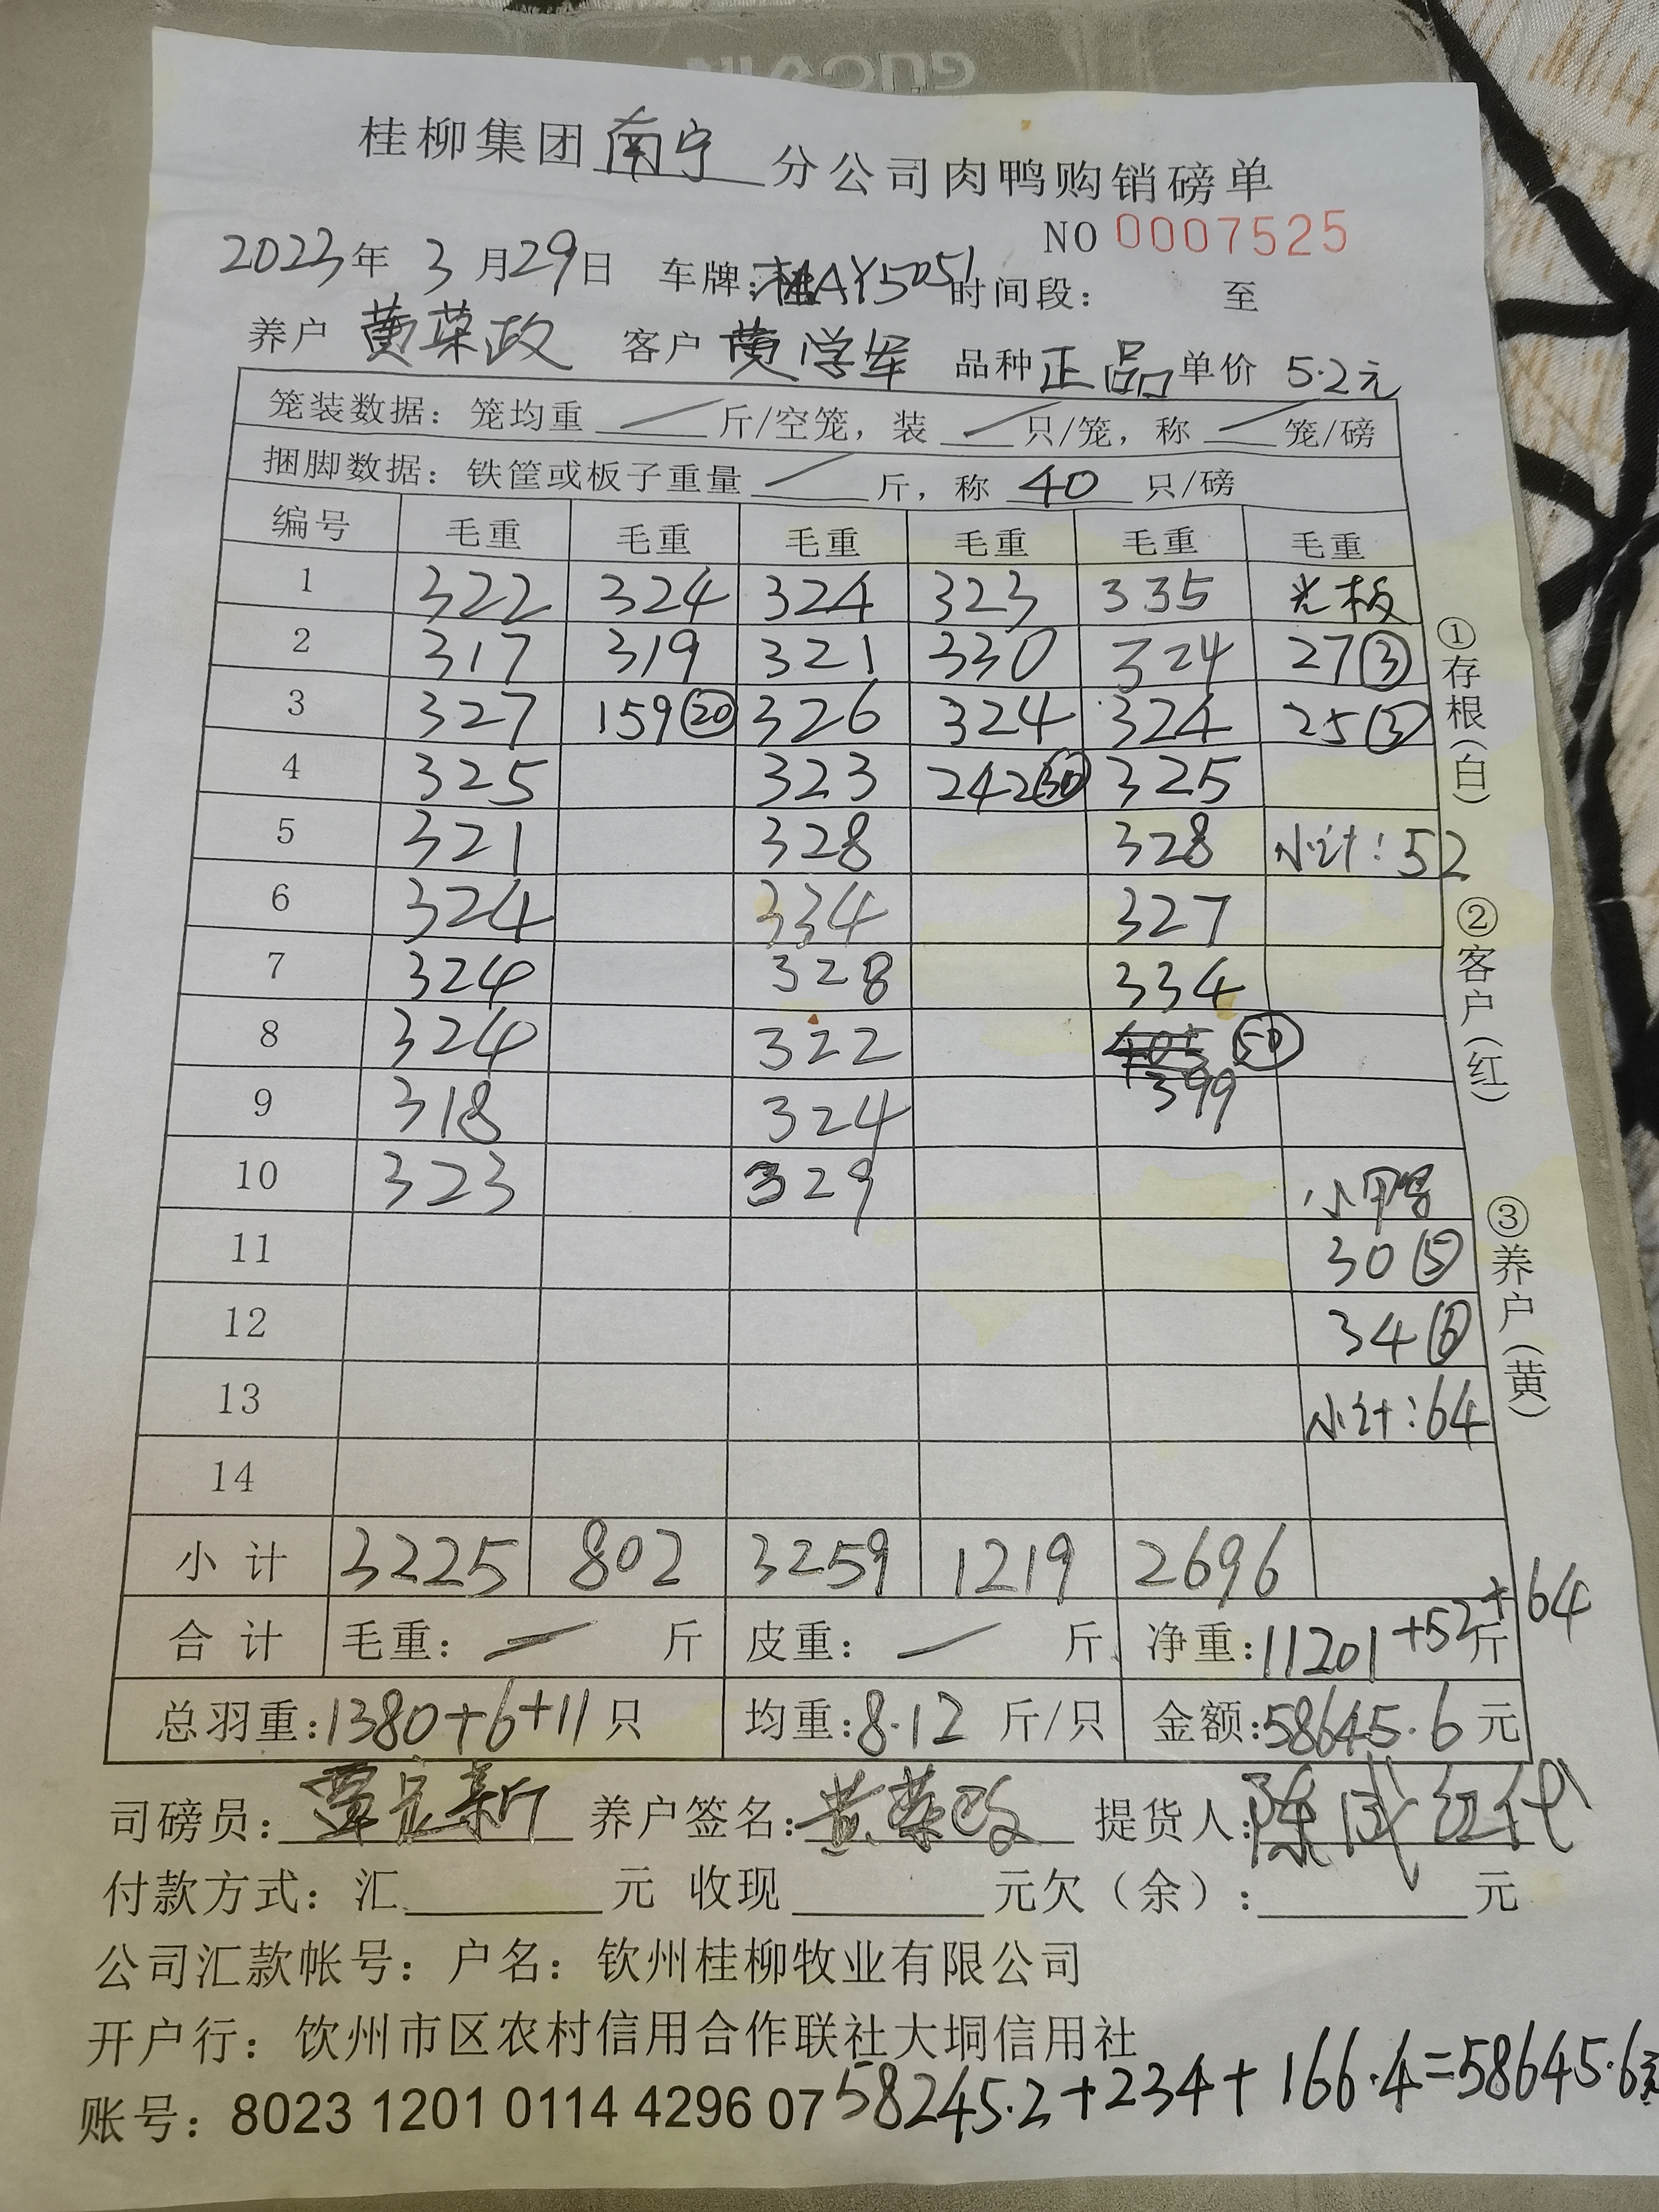 GUCAIN
桂柳集团南宁分公司肉鸭购销磅单
NO 0007525
2023年 3月29日 车牌:桂AY5051 时间段: 至
养户 黄荣政 客户 黄学军 品种 正品 单价 5.2元
笼装数据:笼均重 / 斤/空笼,装 / 只/笼,称 / 笼/磅
捆脚数据:铁筐或板子重量 / 斤,称 40 只/磅
编号 毛重 毛重 毛重 毛重 毛重 毛重
1 322 324 324 323 335 光板
2 317 319 321 330 324 27③
3 327 159⑳ 326 324 324 25③
4 325 323 242㉚ 325
5 321 328 328 小计:52
6 324 334 327
7 324 328 334
8 324 322 ㊿
9 318 324 399
10 323 329 小鸭
11 30⑤
12 34⑥
13 小计:64
14
小计 3225 802 3259 1219 2696
合计 毛重: / 斤 皮重: / 斤 净重:11201+52+64斤
总羽重:1380+6+11只 均重:8.12斤/只 金额:58645.6元
司磅员: 养户签名:黄荣政 提货人:陈成红代
付款方式:汇 元 收现 元欠(余): 元
公司汇款帐号:户名:钦州桂柳牧业有限公司
开户行:饮州市区农村信用合作联社大垌信用社
账号:8023 1201 0114 4296 07
58245.2+234+166.4=58645.6元
①存根(白)
②客户(红)
③养户(黄)